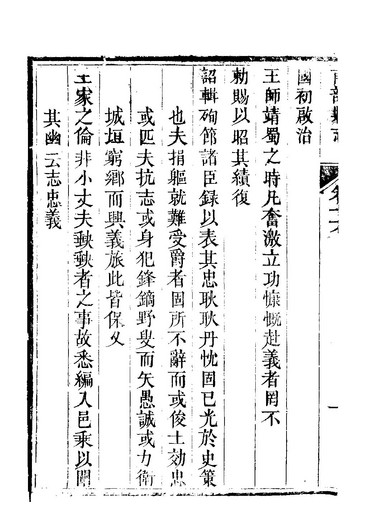 南部縣志
國初啟治
王師靖蜀之時凡奮激立功慷慨赴義者罔不
勅賜以昭其績復
詔輯殉節諸臣錄以表其忠耿耿丹忱固已光於史策
也夫捐軀就難受爵者固所不辭而或俊士効忠
或匹夫抗志或身犯鋒鏑野叟而矢愚誠或力衛
城垣窮鄉而興義旅此皆保乂
王家之倫非小丈夫鞅鞅者之事故悉編入邑乘以闡
其幽云志忠義